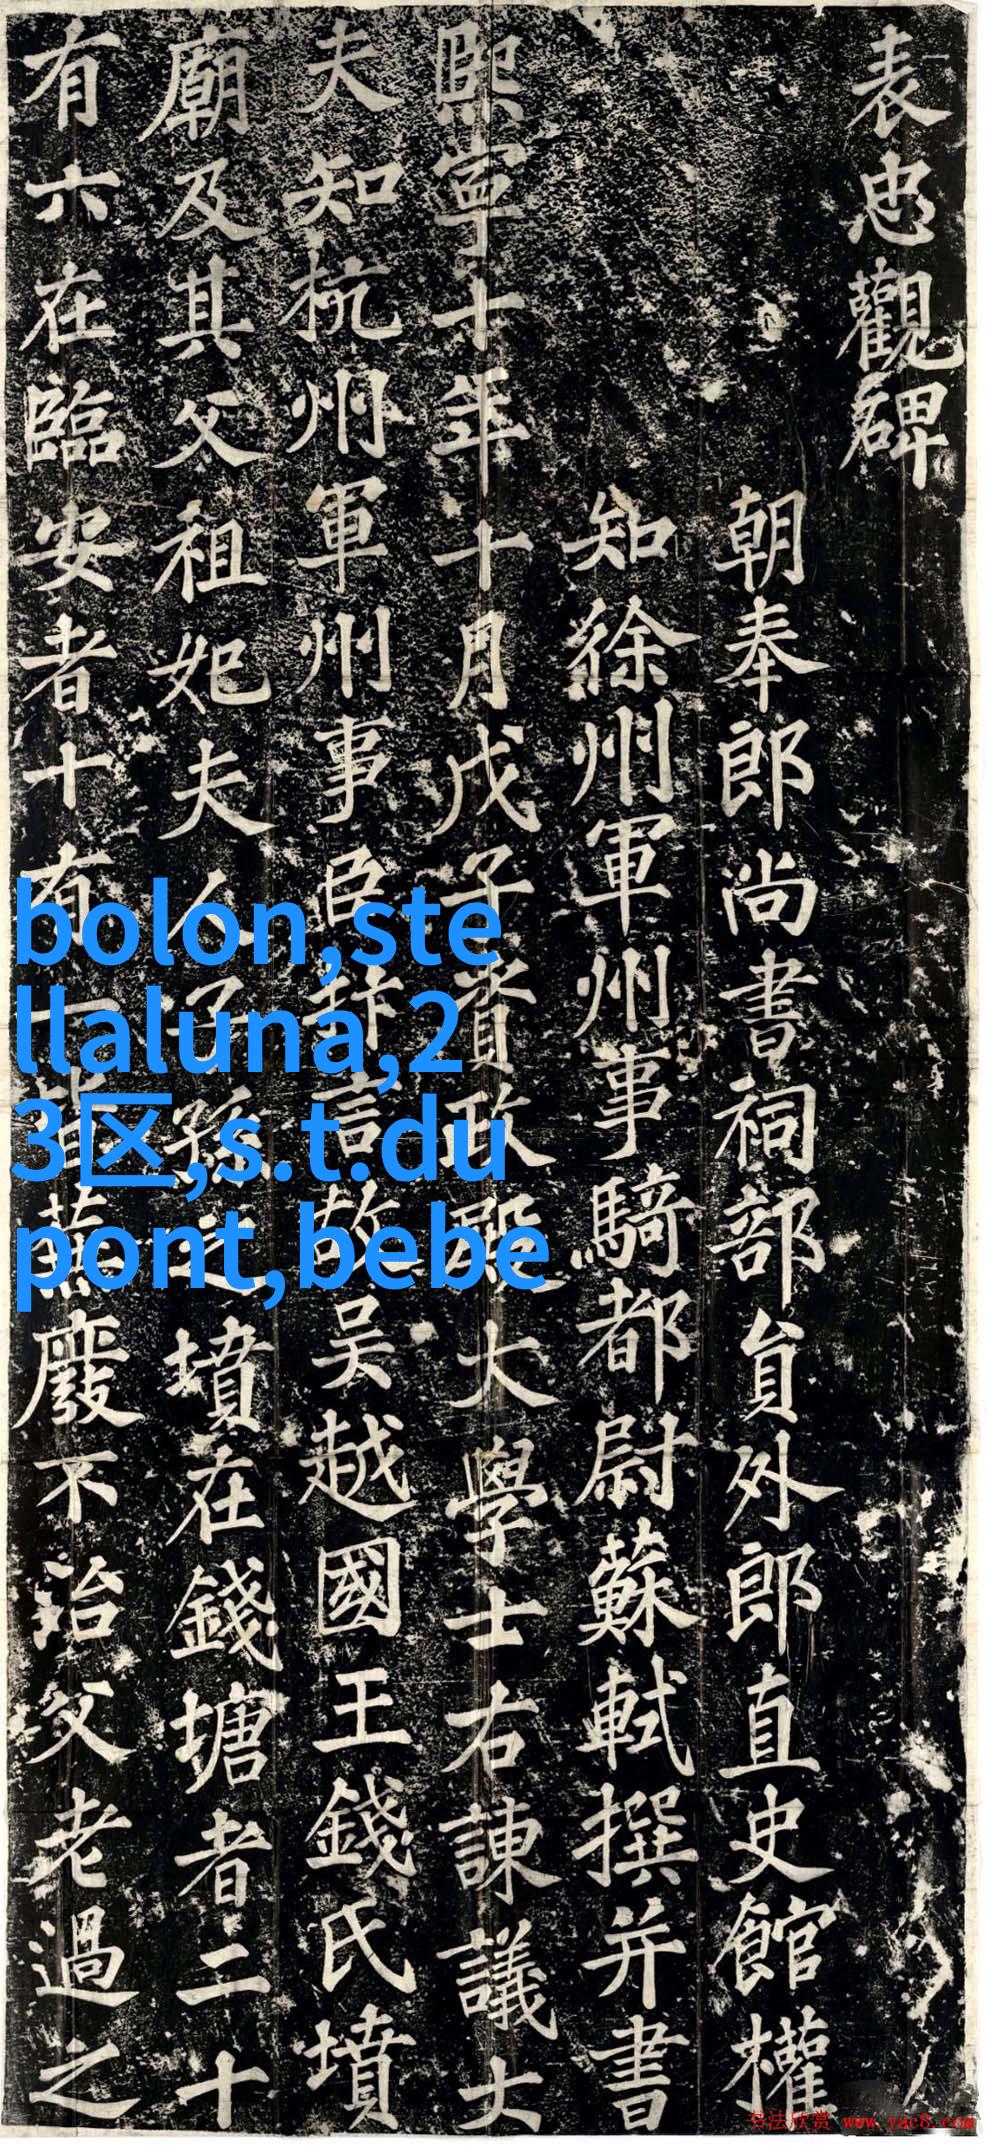 表忠觀碑
朝奉郎尚書祠部員外郎直史館權
知徐州軍州事騎都尉蘇軾撰并書
熙寧十年十月戊子資政殿大學士右諫議大
夫知杭州軍州事臣抃言故吳越國王錢氏墳
廟及其父祖妃夫人子孫之墳在錢塘者二十
有六在臨安者十有一皆蕪廢不治父老過之
bolon,ste
llaluna,2
3区,s.t.du
pont,bebe
书法欣赏 www.yac8.com